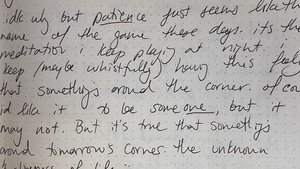 idk why but patience just seems like the
name of the game these days. it's the
meditation i keep playing at night. i
keep (maybe whistfully) having this feel
that somethings around the corner. of co
id like it to be someone, but it
may not. But it's true that somethigs
around tomorrows corner. the unknown
of life